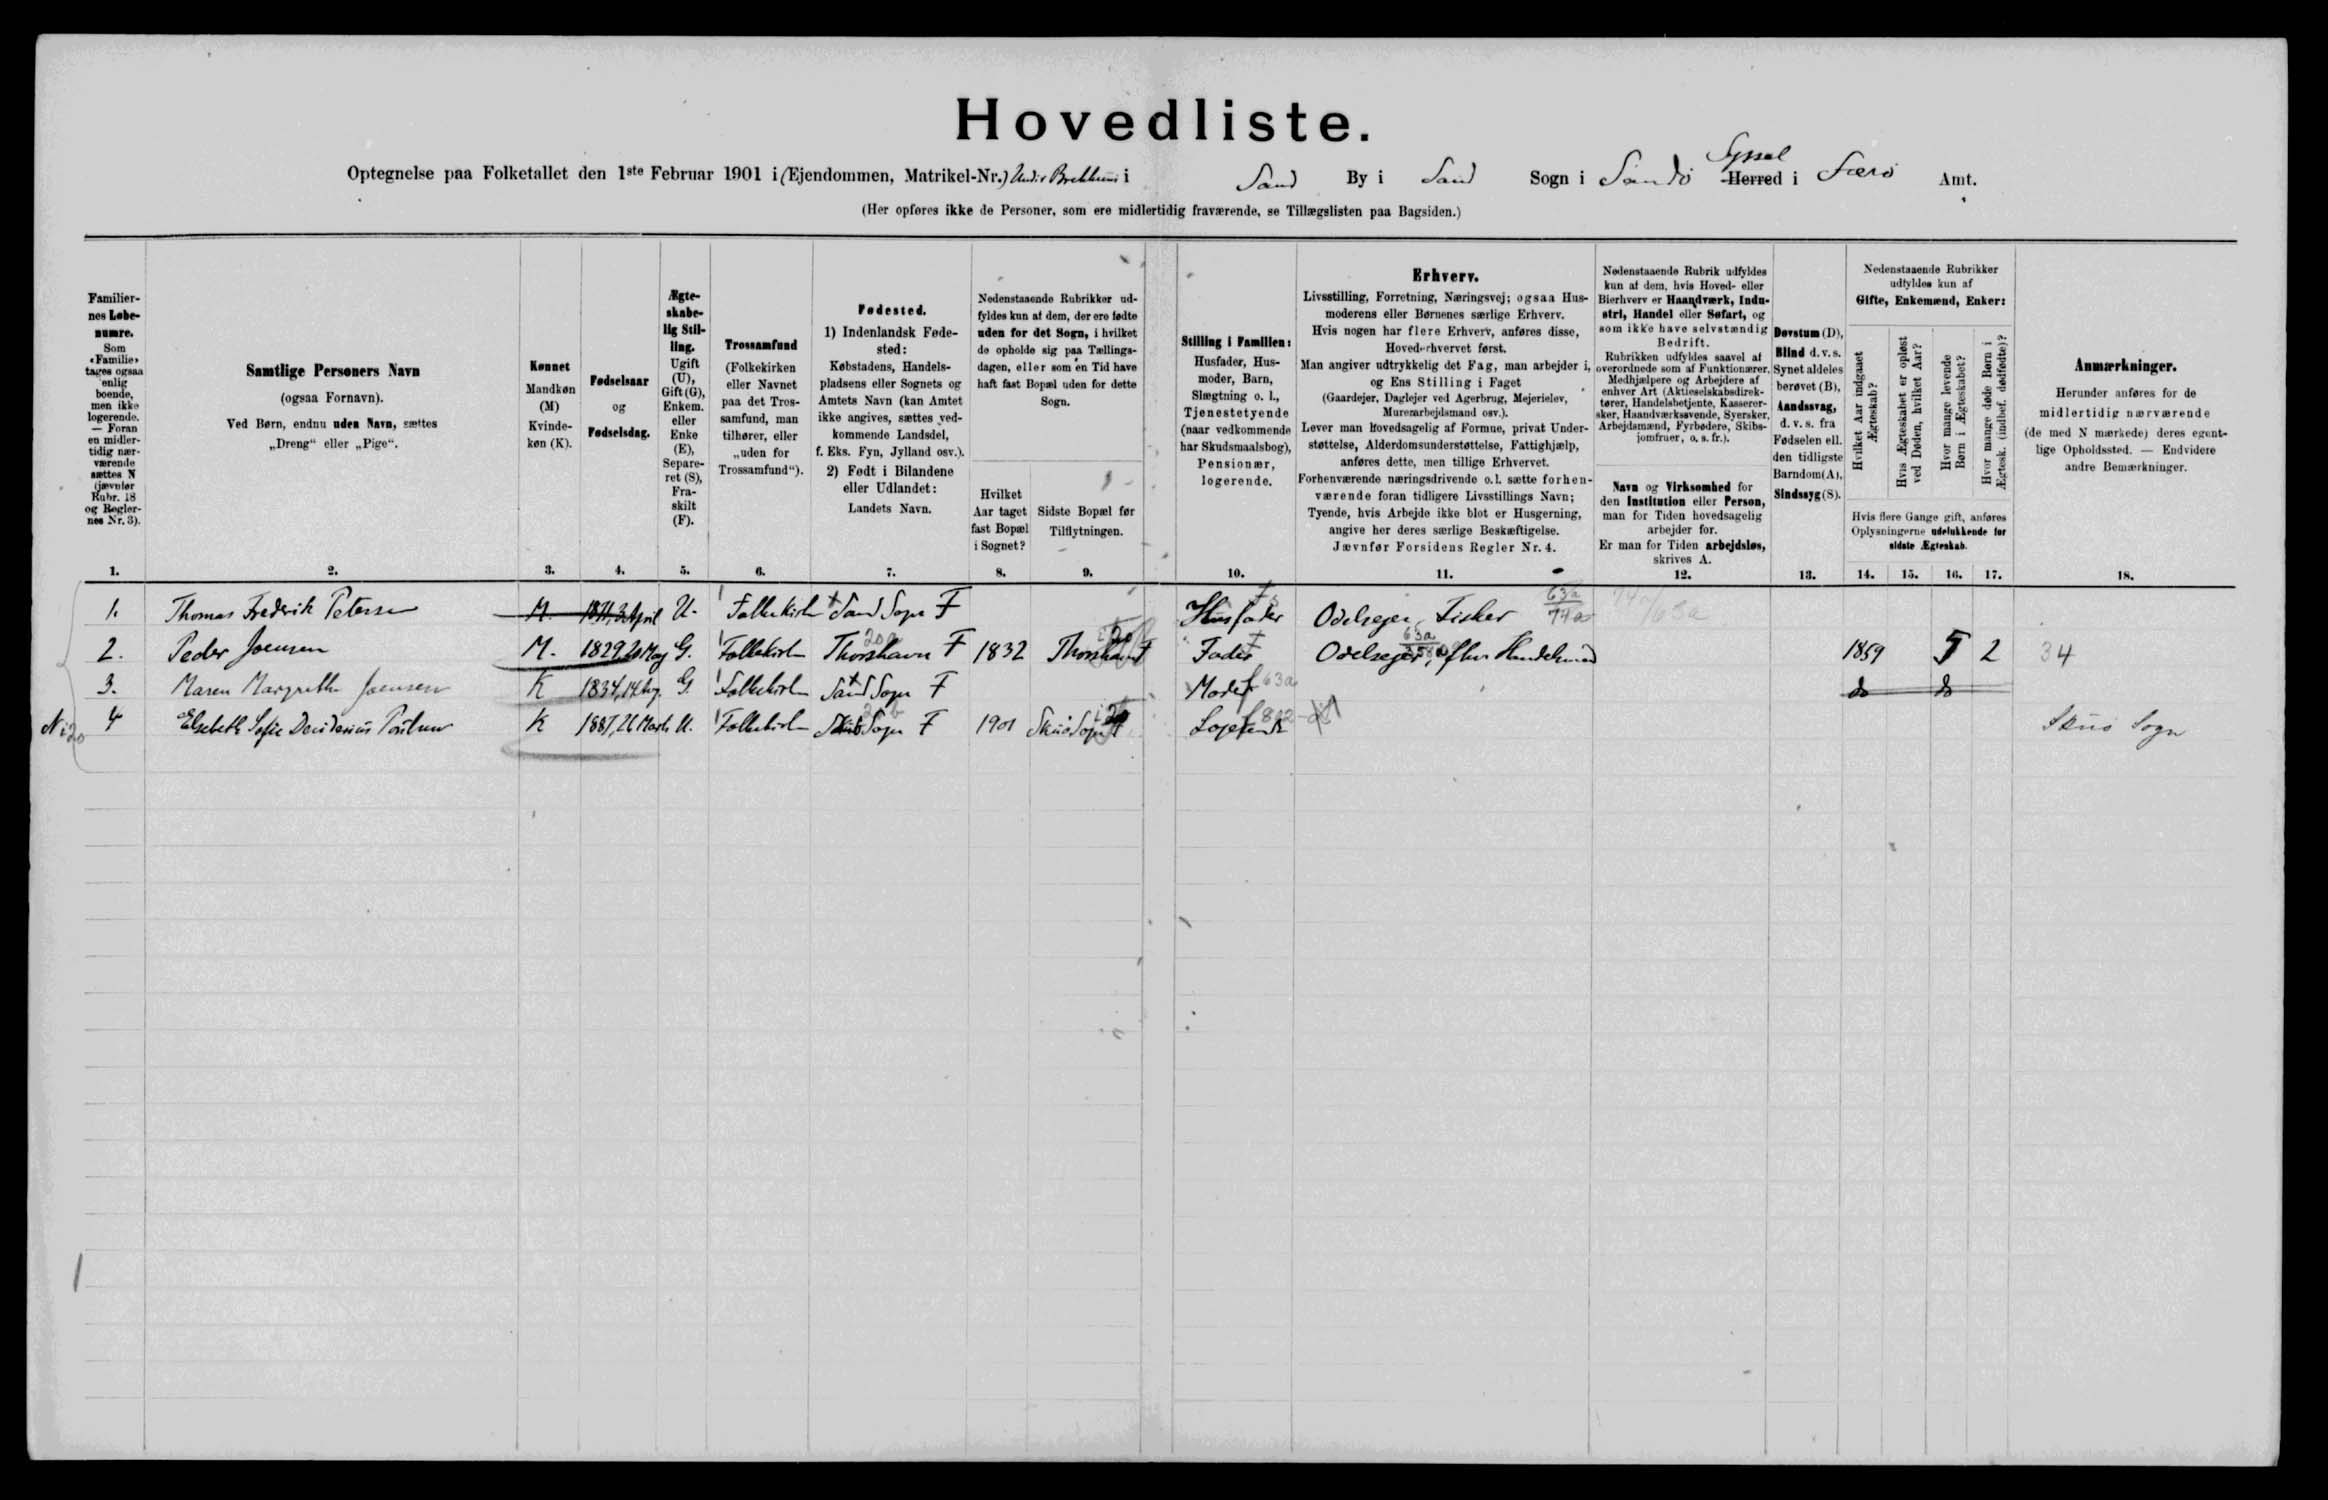 Hovedliste.
Syssel
Optegnelse paa Folketallet den 1ste Februar 1901 i (Ejendommen, Matrikel-Nr.) Undir Brekkuni i Sand By i Sand Sogn i Sandø Herred i Færø Amt.
(Her opføres ikke de Personer, som ere midlertidig fraværende, se Tillægslisten paa Bagsiden.)
Familier-
nes Løbe-
numre.
Som
«Familie»
tages ogsaa
enlig
boende,
men ikke
logerende.
— Foran
en midler-
tidig nær-
værende
sættes N
(jævnfør
Rubr. 18
og Regler-
nes Nr. 3).
Samtlige Personers Navn
(ogsaa Fornavn).
Ved Børn, endnu uden Navn, sættes
„Dreng“ eller „Pige“.
Kønnet
Mandkøn
(M)
Kvinde-
køn (K).
Fødselsaar
og
Fødselsdag.
Ægte-
skabe-
lig Stil-
ling.
Ugift
(U),
Gift (G),
Enkem.
eller
Enke
(E),
Separe-
ret (S),
Fra-
skilt
(F).
Trossamfund
(Folkekirken
eller Navnet
paa det Tros-
samfund, man
tilhører, eller
„uden for
Trossamfund“).
Fødested.
1) Indenlandsk Føde-
sted:
Købstadens, Handels-
pladsens eller Sognets og
Amtets Navn (kan Amtet
ikke angives, sættes ved-
kommende Landsdel,
f. Eks. Fyn, Jylland osv.).
2) Født i Bilandene
eller Udlandet:
Landets Navn.
Nedenstaaende Rubrikker ud-
fyldes kun af dem, der ere fødte
uden for det Sogn, i hvilket
de opholde sig paa Tællings-
dagen, eller som en Tid have
haft fast Bopæl uden for dette
Sogn.
Hvilket
Aar taget
fast Bopæl
i Sognet?
Sidste Bopæl før
Tilflytningen.
Stilling i Familien:
Husfader, Hus-
moder, Barn,
Slægtning o. l.,
Tjenestetyende
(naar vedkommende
har Skudsmaalsbog),
Pensionær,
logerende.
Erhverv.
Livsstilling, Forretning, Næringsvej; ogsaa Hus-
moderens eller Børnenes særlige Erhverv.
Hvis nogen har flere Erhverv, anføres disse,
Hovederhvervet først.
Man angiver udtrykkelig det Fag, man arbejder i,
og Ens Stilling i Faget
(Gaardejer, Daglejer ved Agerbrug, Mejerielev,
Murerarbejdsmand osv.).
Lever man Hovedsagelig af Formue, privat Under-
støttelse, Alderdomsunderstøttelse, Fattighjælp,
anføres dette, men tillige Erhvervet.
Forhenværende næringsdrivende o.l. sætte forhen-
værende foran tidligere Livsstillings Navn;
Tyende, hvis Arbejde ikke blot er Husgerning,
angive her deres særlige Beskæftigelse.
Jævnfør Forsidens Regler Nr. 4.
Nedenstaaende Rubrik udfyldes
kun af dem, hvis Hoved- eller
Bierhverv er Haandværk, Indu-
stri, Handel eller Søfart, og
som ikke have selvstændig
Bedrift.
Rubrikken udfyldes saavel af
overordnede som af Funktionærer,
Medhjælpere og Arbejdere af
enhver Art (Aktieselskabsdirek-
tører, Handelsbetjente, Kasserer-
sker, Haandværkssvende, Syersker,
Arbejdsmænd, Fyrbødere, Skibs-
jomfruer, o. s. fr.).
Navn og Virksomhed for
den Institution eller Person,
man for Tiden hovedsagelig
arbejder for.
Er man for Tiden arbejdsløs,
skrives A.
Døvstum (D),
Blind d. v. s.
Synet aldeles
berøvet (B),
Aandssvag,
d. v. s. fra
Fødselen ell.
den tidligste
Barndom (A),
Sindssyg (S).
Nedenstaaende Rubrikker
udfyldes kun af
Gifte, Enkemænd, Enker:
Hvilket Aar indgaaet
Ægteskab?
Hvis Ægteskabet er opløst
ved Døden, hvilket Aar?
Hvor mange levende
Børn i Ægteskabet?
Hvor mange døde Børn i
Ægtesk. (indbef. dødfødte)?
Hvis flere Gange gift, anføres
Oplysningerne udelukkende for
sidste Ægteskab.
Anmærkninger.
Herunder anføres for de
midlertidig nærværende
(de med N mærkede) deres egent-
lige Opholdssted. — Endvidere
andre Bemærkninger.
1. 2. 3. 4. 5. 6. 7. 8. 9. 10. 11. 12. 13. 14. 15. 16. 17. 18.
1. Thomas Frederik Petersen M. 1871, 3 April U. Folkekirken Sand Sogn F Husfader Odelsejer, Fisker 63a 74a
2. Peder Joensen M. 1829, 20 May G. Folkekirken Thorshavn F 1832 Thorshavn Fader Odelsejer, Handelsmand 1859 5 2 34
3. Maren Margrethe Joensen K 1834, 14 Aug. G. Folkekirken Sand Sogn F Moder 63a do do
N 4 Elsebeth Sofie Poulsen K 26 Marts U. Folkekirken Skuø Sogn F 1901 Skuø Sogn Logerende Skuø Sogn